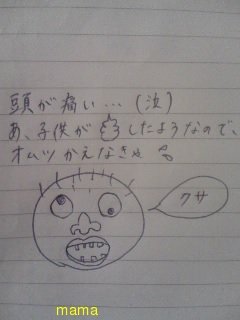 頭が痛い…(泣)
あ、子供が💩したようなので、
オムツかえなきゃ
クサ
mama